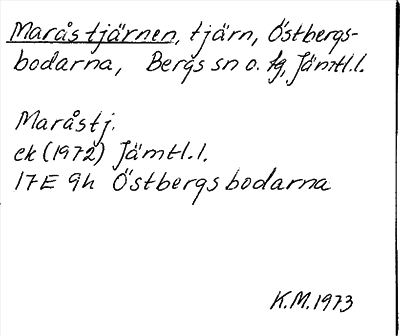 Maråstjärnen, tjärn, Östbergs-
bodarna, Bergs sn o. tg, Jämtl.l.
Maråstj.
ek (1972) Jämtl.l.
17E 9h Östbergsbodarna
K.M.1973